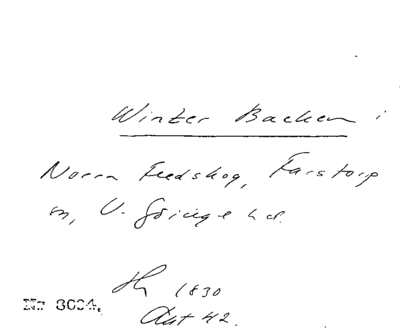 Winter Backen i
Norra Fredskog, Farstorp
sn, V. Göinge hd.
1830
Aat 42.
No 3004.